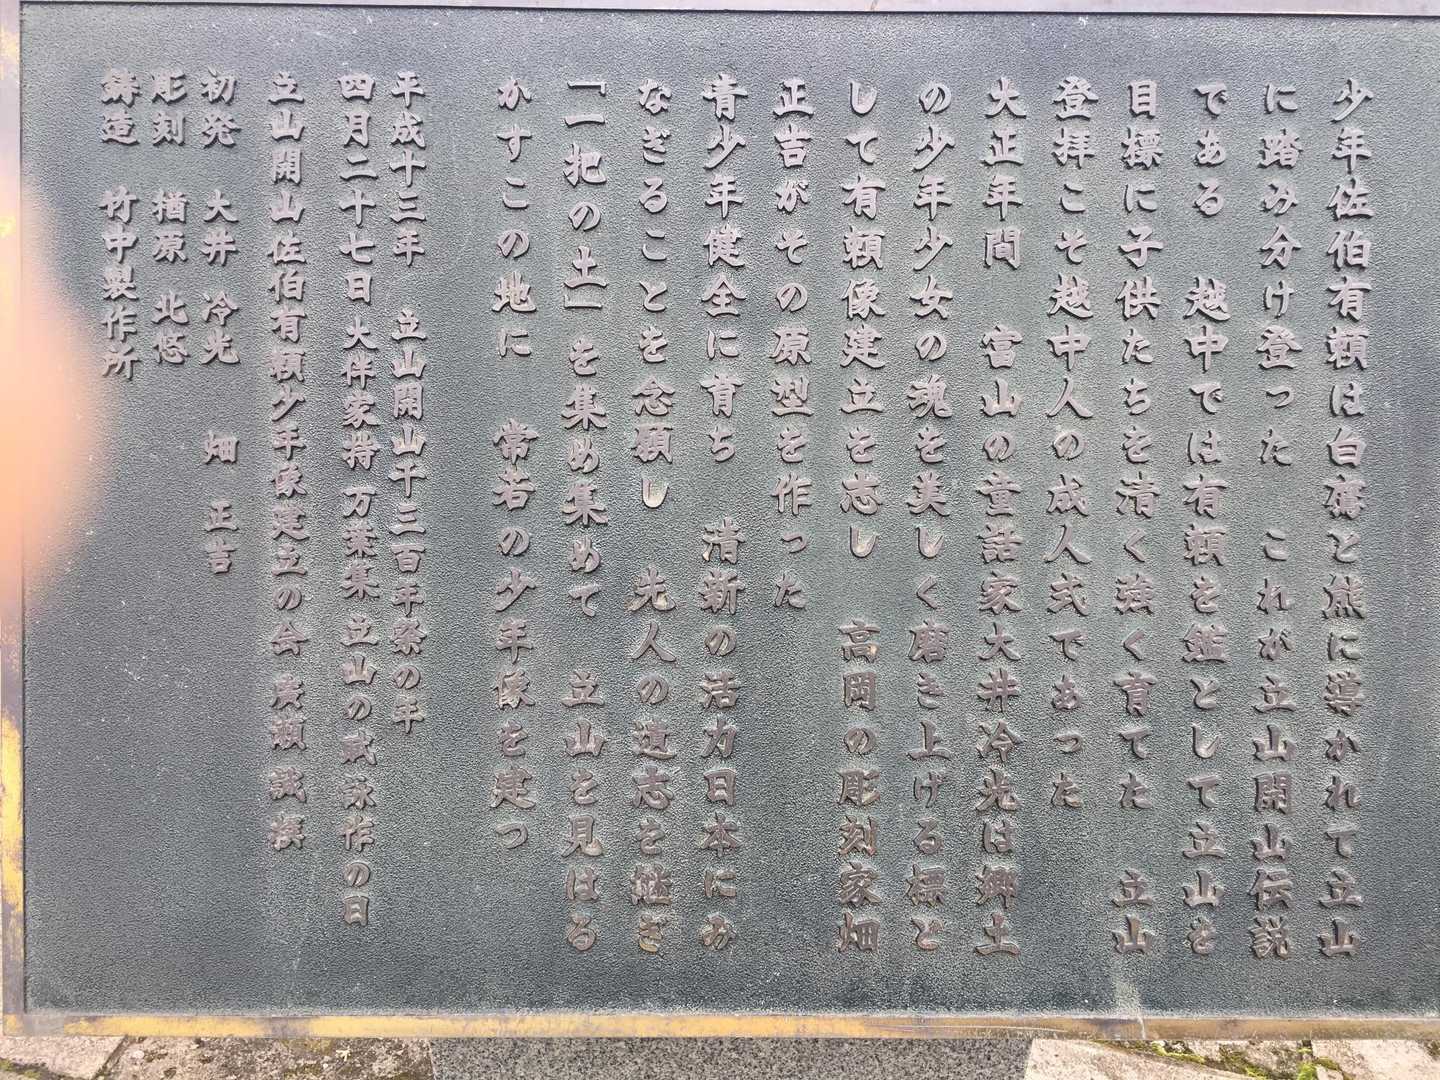 少年佐伯有頼は白鷹と熊に導かれて立山
に踏み分け登った　これが立山開山伝説
である　越中では有頼を鑑として立山を
目標に子供たちを清く強く育てた　立山
登拝こそ越中人の成人式であった
大正年間　富山の童話家大井冷光は郷土
の少年少女の魂を美しく磨き上げる標と
して有頼像建立を志し　高岡の彫刻家畑
正吉がその原型を作った
青少年健全に育ち　清新の活力日本にみ
なぎることを念願し　先人の遺志を継ぎ
「一把の土」を集め集めて　立山を見はる
かすこの地に　常若の少年像を建つ
平成十三年　立山開山千三百年祭の年
四月二十七日　大伴家持　万葉集　立山の賦詠作の日
立山開山佐伯有頼少年像建立の会　広瀬　誠　撰
初発　大井　冷光　畑　正吉
彫刻　楢原　北悠
鋳造　竹中製作所